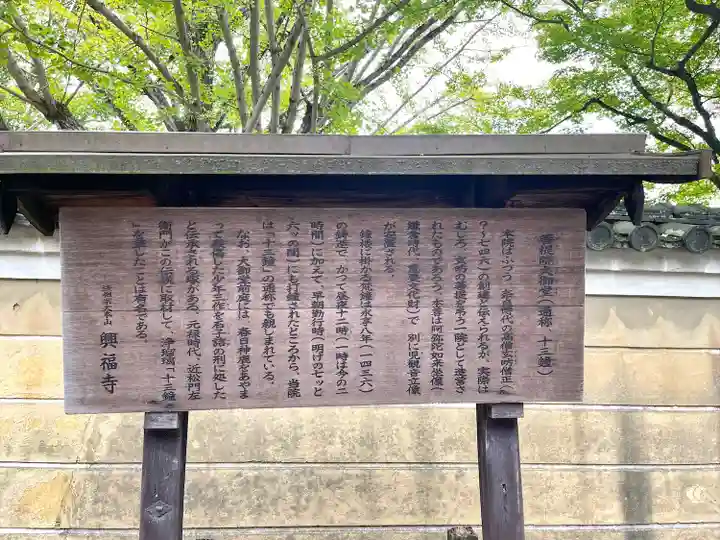 菩提院大御堂(通称、十三鐘)
本院はふつう、奈良時代の高僧玄昉僧正(
?〜七四六)の創建と伝えられるが、実際は
むしろ、玄昉の菩提を弔う一院として造営さ
れたものであろう。本尊は阿弥陀如来坐像(
鎌倉時代、重要文化財)で 別に児観音立像
が安置される。
鐘楼に掛かる梵鐘は永享八年(一四三六)
の鋳造で、かつて昼夜十二時(一時は今の二
時間)に加えて、早朝勤行時(明けの七ッと
六ッの間)にも打鐘されたところから、当院
は「十三鐘」の通称でも親しまれている。
なお、大御堂前庭には、春日神鹿をあやま
って殺傷した少年三作を石子詰の刑に処した
と伝承される塚がある。元禄時代、近松門左
衛門がこの伝説に取材して、浄瑠璃「十三鐘
」を草したことは有名である。
法相宗大本山 興福寺